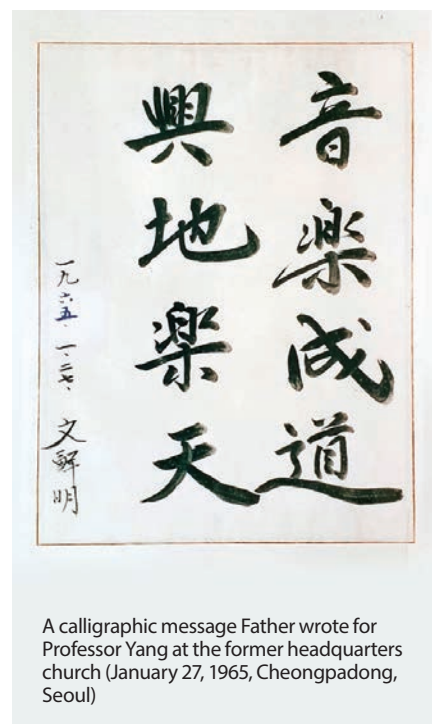 音楽成道
興地楽天
一九六五、一、二七、文鮮明
A calligraphic message Father wrote for
Professor Yang at the former headquarters
church (January 27, 1965, Cheongpadong,
Seoul)